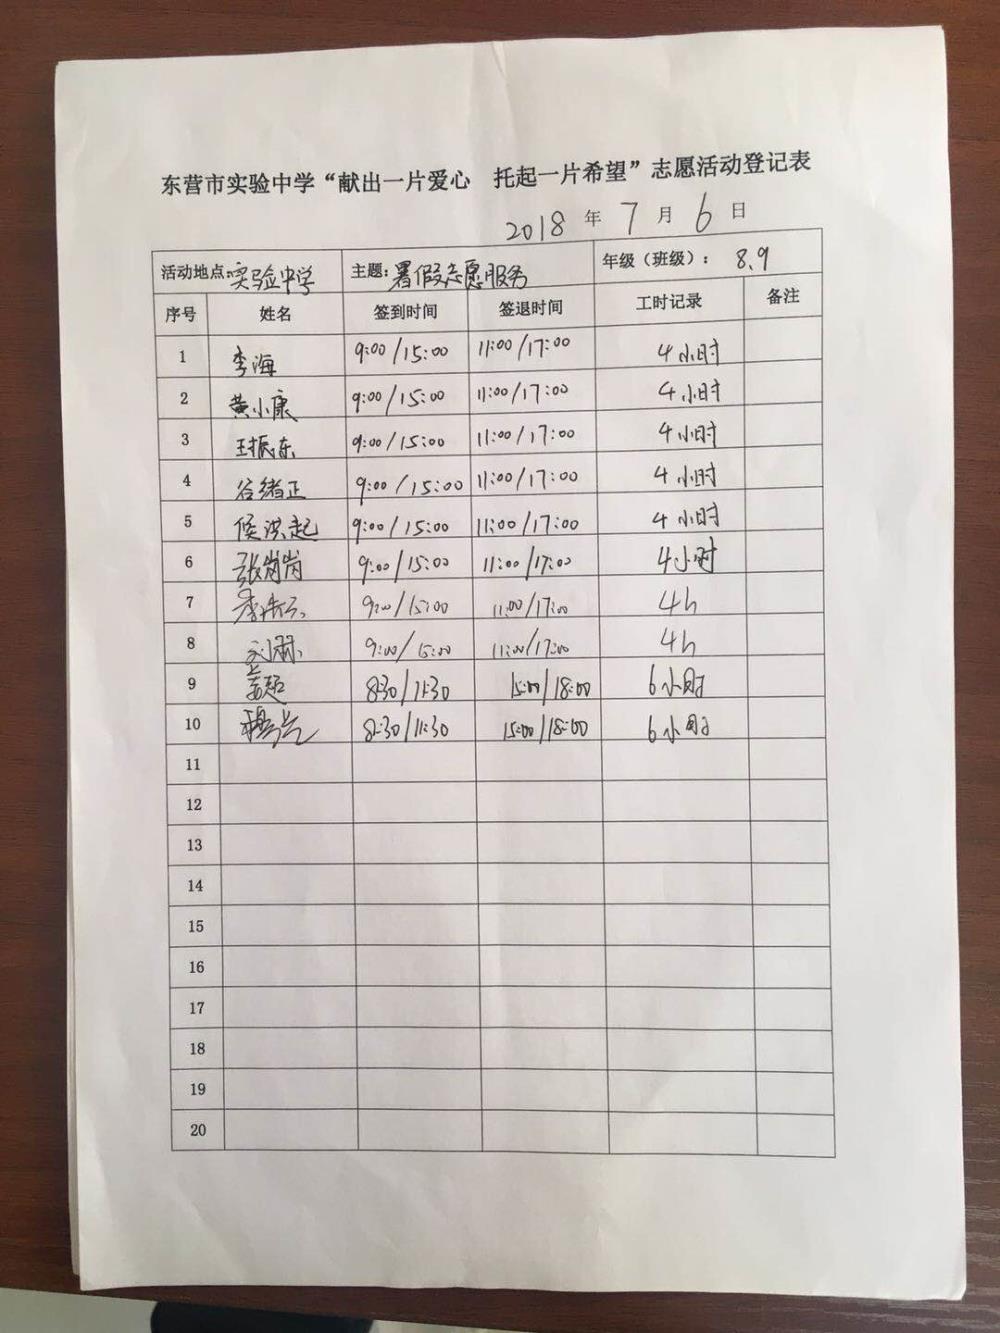 东营市实验中学“献出一片爱心 托起一片希望”志愿活动登记表
2018年7月6日
活动地点 实验中学 主题：暑假志愿服务 年级（班级）：8.9
序号 姓名 签到时间 签退时间 工时记录 备注
1 李海 9:00/15:00 11:00/17:00 4小时
2 黄小康 9:00/15:00 11:00/17:00 4小时
3 王振东 9:00/15:00 11:00/17:00 4小时
4 谷绪正 9:00/15:00 11:00/17:00 4小时
5 侯洪起 9:00/15:00 11:00/17:00 4小时
6 张岗岗 9:00/15:00 11:00/17:00 4小时
7 9:00/15:00 11:00/17:00 4h
8 9:00/15:00 11:00/17:00 4h
9 姜超 8:30/11:30 15:00/18:00 6小时
10 8:30/11:30 15:00/18:00 6小时
11
12
13
14
15
16
17
18
19
20